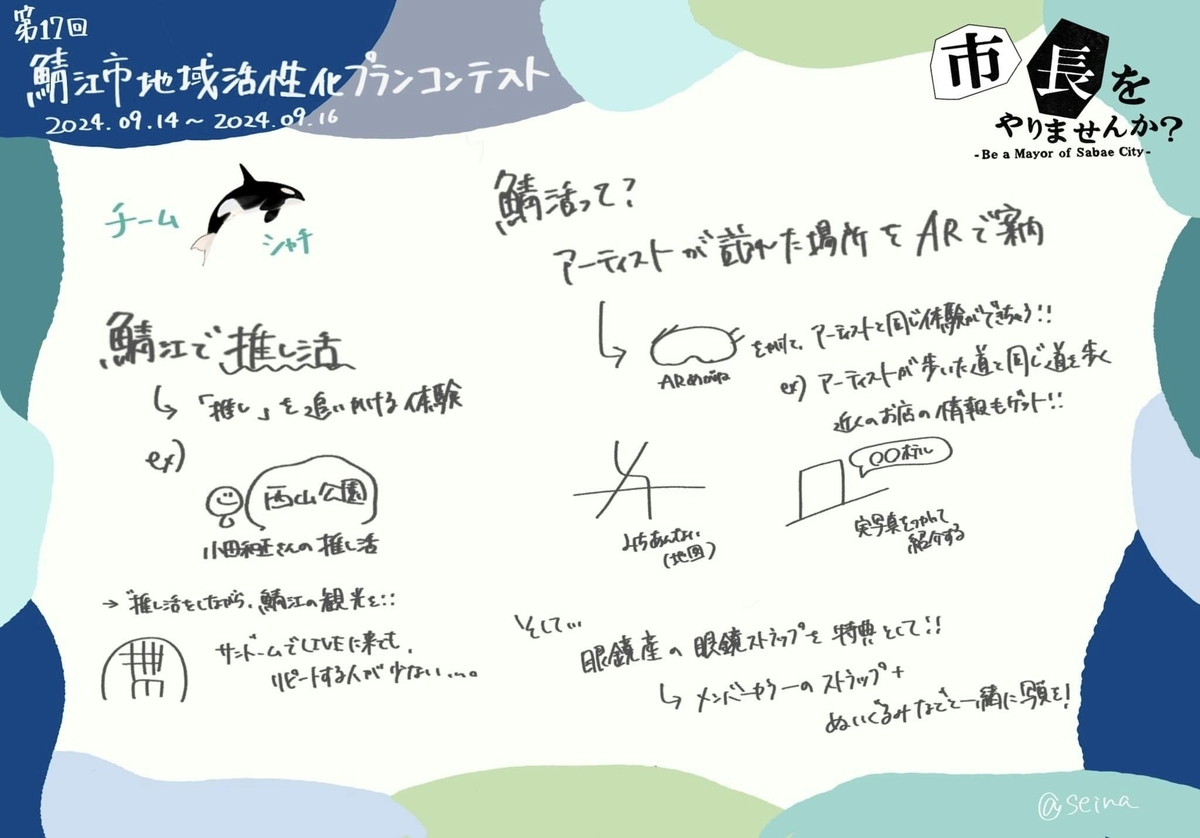 第17回
鯖江市地域活性化プランコンテスト
2024.09.14～2024.09.16
市長を
やりませんか?
-Be a Mayor of Sabae City-
チーム
シャチ
鯖江で推し活
↳「推し」を追いかける体験
ex)
西山公園
小田和正さんの推し活
→推し活をしながら、鯖江の観光を!!
サンドームでLIVEに来ても、
リピートする人が少ない...。
鯖活って?
アーティストが訪れた場所をARで案内
ARめがね
をかけて、アーティストと同じ体験ができちゃう!!
ex) アーティストが歩いた道と同じ道を歩く
近くのお店の情報もゲット!!
みちあんない
(地図)
○○ホテル
実写真をつかって
紹介する
そして...
眼鏡産の眼鏡ストラップを特典として!!
↳メンバーカラーのストラップ+
ぬいぐるみなどと一緒に写真を!
@seina